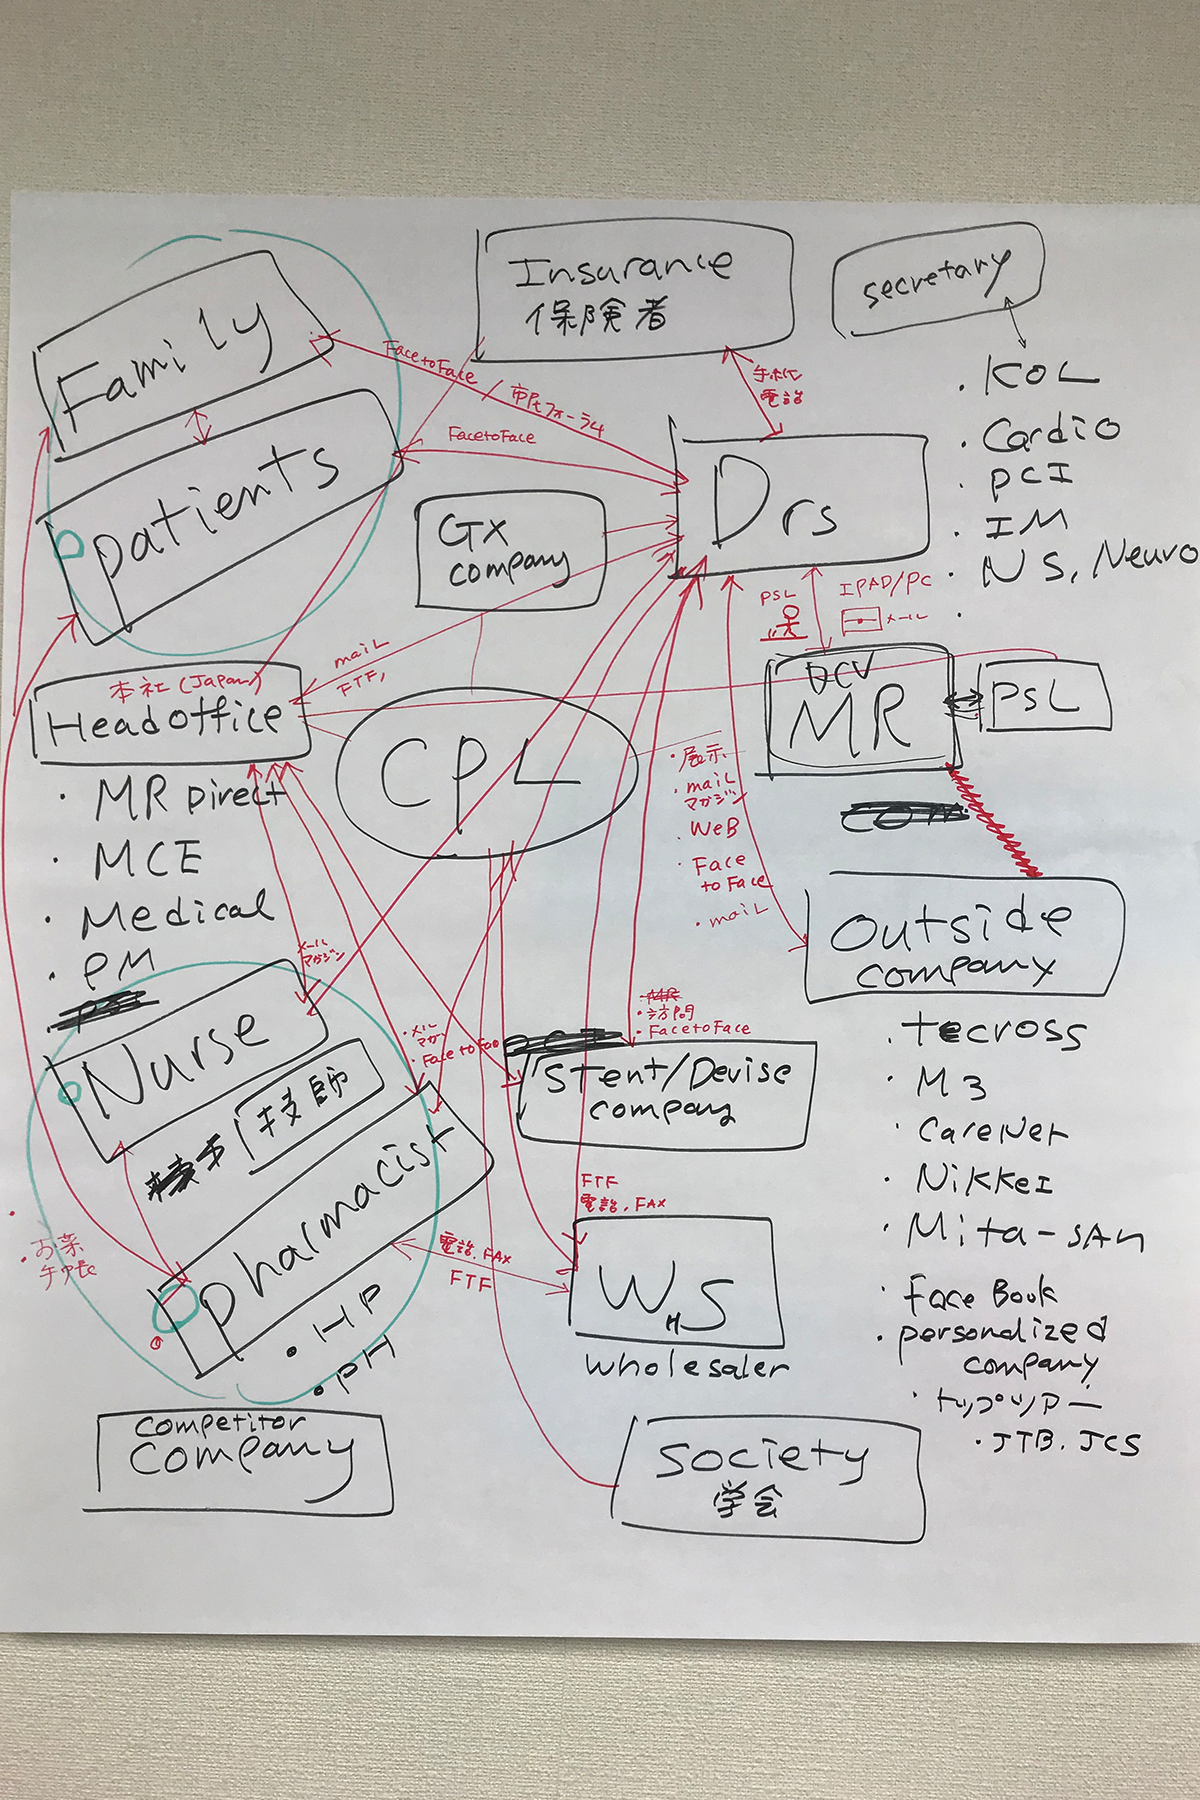 Insurance
保険者
secretary
Family
Face to Face / 市民フォーラム
手紙
電話
・KOL
・Cardio
・PCI
・IM
・NS, Neuro
・
patients
Face to Face
GX
company
Drs
PSL
IPAD/PC
メール
mail
FTF,
本社 (Japan)
Head office
CPL
DCV
MR
PSL
・MR Direct
・MCE
・Medical
・PM
・展示
・mail
マガジン
・WEB
・Face
to Face
・mail
Outside
company
メール
マガジン
Nurse
技師
・メール
マガ
・Face to Face
・MR
・訪問
・Face to Face
Stent/Devise
company
・Tecross
・M3
・CareNet
・Nikkei
・Mita-san
・Face Book
・personalized
company
・トップツアー
・JTB. JCS
pharmacist
・HP
・PH
・お薬
手帳
電話. FAX
FTF
FTF
電話. FAX
WHS
wholesaler
competitor
company
Society
学会